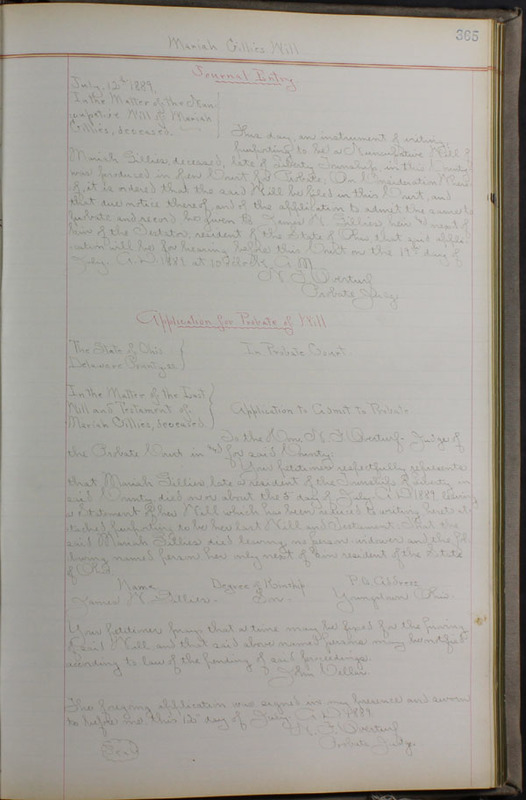 365
Mariah Gillies Will
Journal Entry
July 12th 1889.
In the Matter of the Nun
cupative Will of Mariah
Gillies, deceased.
This day, an instrument of writing
purporting to be a Nuncupative Will of
Mariah Gillies, deceased, late of Liberty Township, in this County
was produced in open Court for Probate, On Consideration Where
of, it is ordered that the said Will be filed in this Court, and
that due notice thereof, and of the application to admit the same to
probate and record be given to James W. Gillies heir & next of
kin of the Testator, resident of the State of Ohio that said appli-
cation will be for hearing before this Court on the 19th day of
July A.D. 1889 at 10 o'clock, A.M.
N. F. Overturf
Probate Judge
Application for Probate of Will
The State of Ohio
Delaware County ss
In Probate Court
In the Matter of the Last
Will and Testament of
Mariah Gillies, deceased
Application to Admit to Probate
To the Hon. N. F. Overturf - Judge of
the Probate Court in and for said County:
Your petitioner respectfully represents
that Mariah Gillies late a resident of the Township of Liberty in
said County, died on or about the 5 day of July A.D. 1889 leaving
a Statement of her Will which has been reduced to writing hereto at-
tached purporting to be her last Will and Testament. That the
said Mariah Gillies died leaving no person widower and the fol-
lowing named person her only next of kin resident of the State
of Ohio
Name Degree of Kinship P.O. Address
James W. Gillies - Son - Ohio
Your petitioner prays that a time may be fixed for the proving
of said Will and that said above named persons may be notified
according to law of the pending of said proceedings.
John
The foregoing application was signed in my presence and sworn
to before me this 12th day of July A.D. 1889.
N. F. Overturf
Probate Judge.
Seal